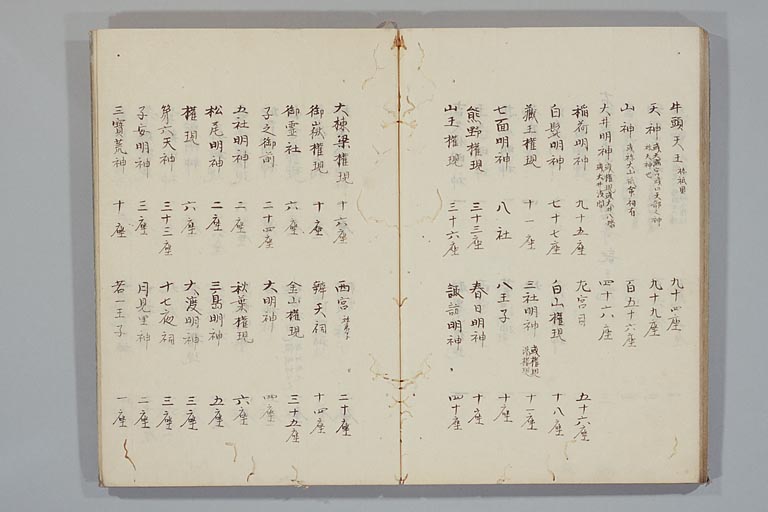 牛頭天王 九十四座
天神 九十九座
山神 百五十六座
大井明神 四十六座
稲荷明神 九十五座 九宮司 五十六座
白髭明神 七十七座 白山権現 十八座
蔵王権現 十一座 三社明神 十一座
七面明神 八社 八王子 十座
熊野権現 三十三座 春日明神 十座
山王権現 三十六座 諏訪明神 四十座
大棟梁権現 十六座 西宮 二十座
御嶽権現 十座 辨天祠 十四座
御霊社 六座 金山権現 三十五座
子之御前 二十四座 大明神 四座
五社明神 二座 秋葉権現 六座
松尾明神 二座 三島明神 五座
権現 六座 大渡明神 三座
第六天神 三十三座 十七夜祠 三座
子安明神 三座 月見里神 二座
三寶荒神 十座 若一王子 一座